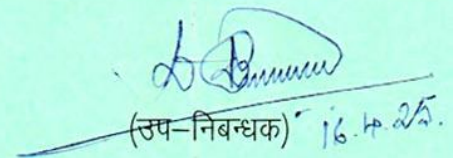 (उप–निबन्धक) 16.4.25.